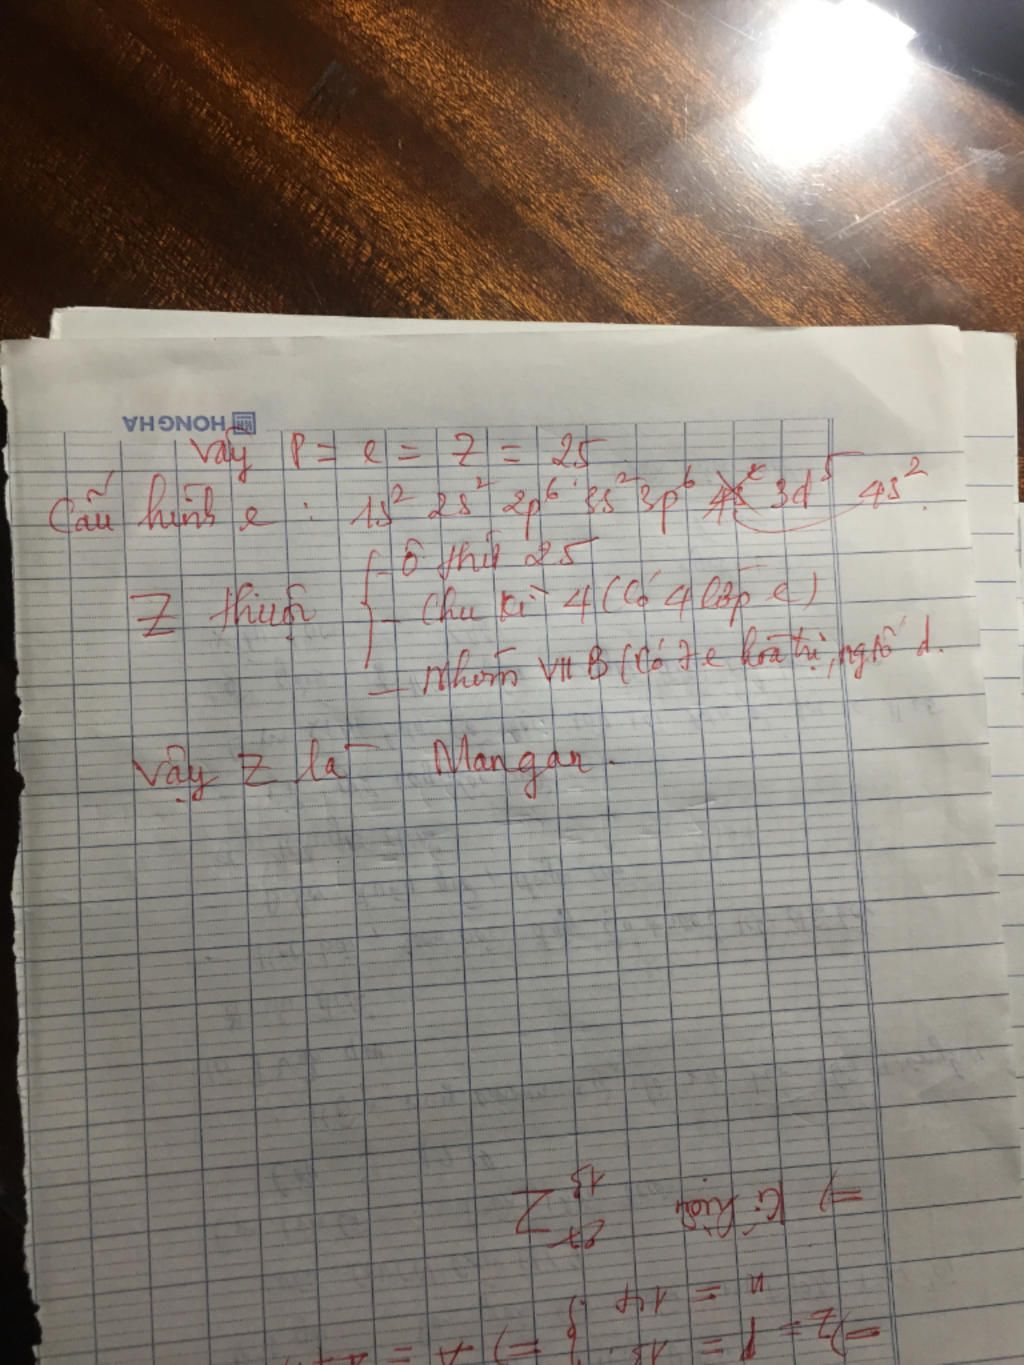 HONG HA
Vậy P = e = Z = 25
Cấu hình e : 1s² 2s² 2p⁶ 3s² 3p⁶ 4s² 3d⁵ 4s².
Z thuộc { - ô thứ 25
- Chu kì 4 (Có 4 lớp e)
- Nhóm VII B (Có 7 e hóa trị, ng tố d.
Vậy Z là Mangan.
=> Kí hiệu 27 13 Z
n = 14
=> Z = P = 13 } => A =